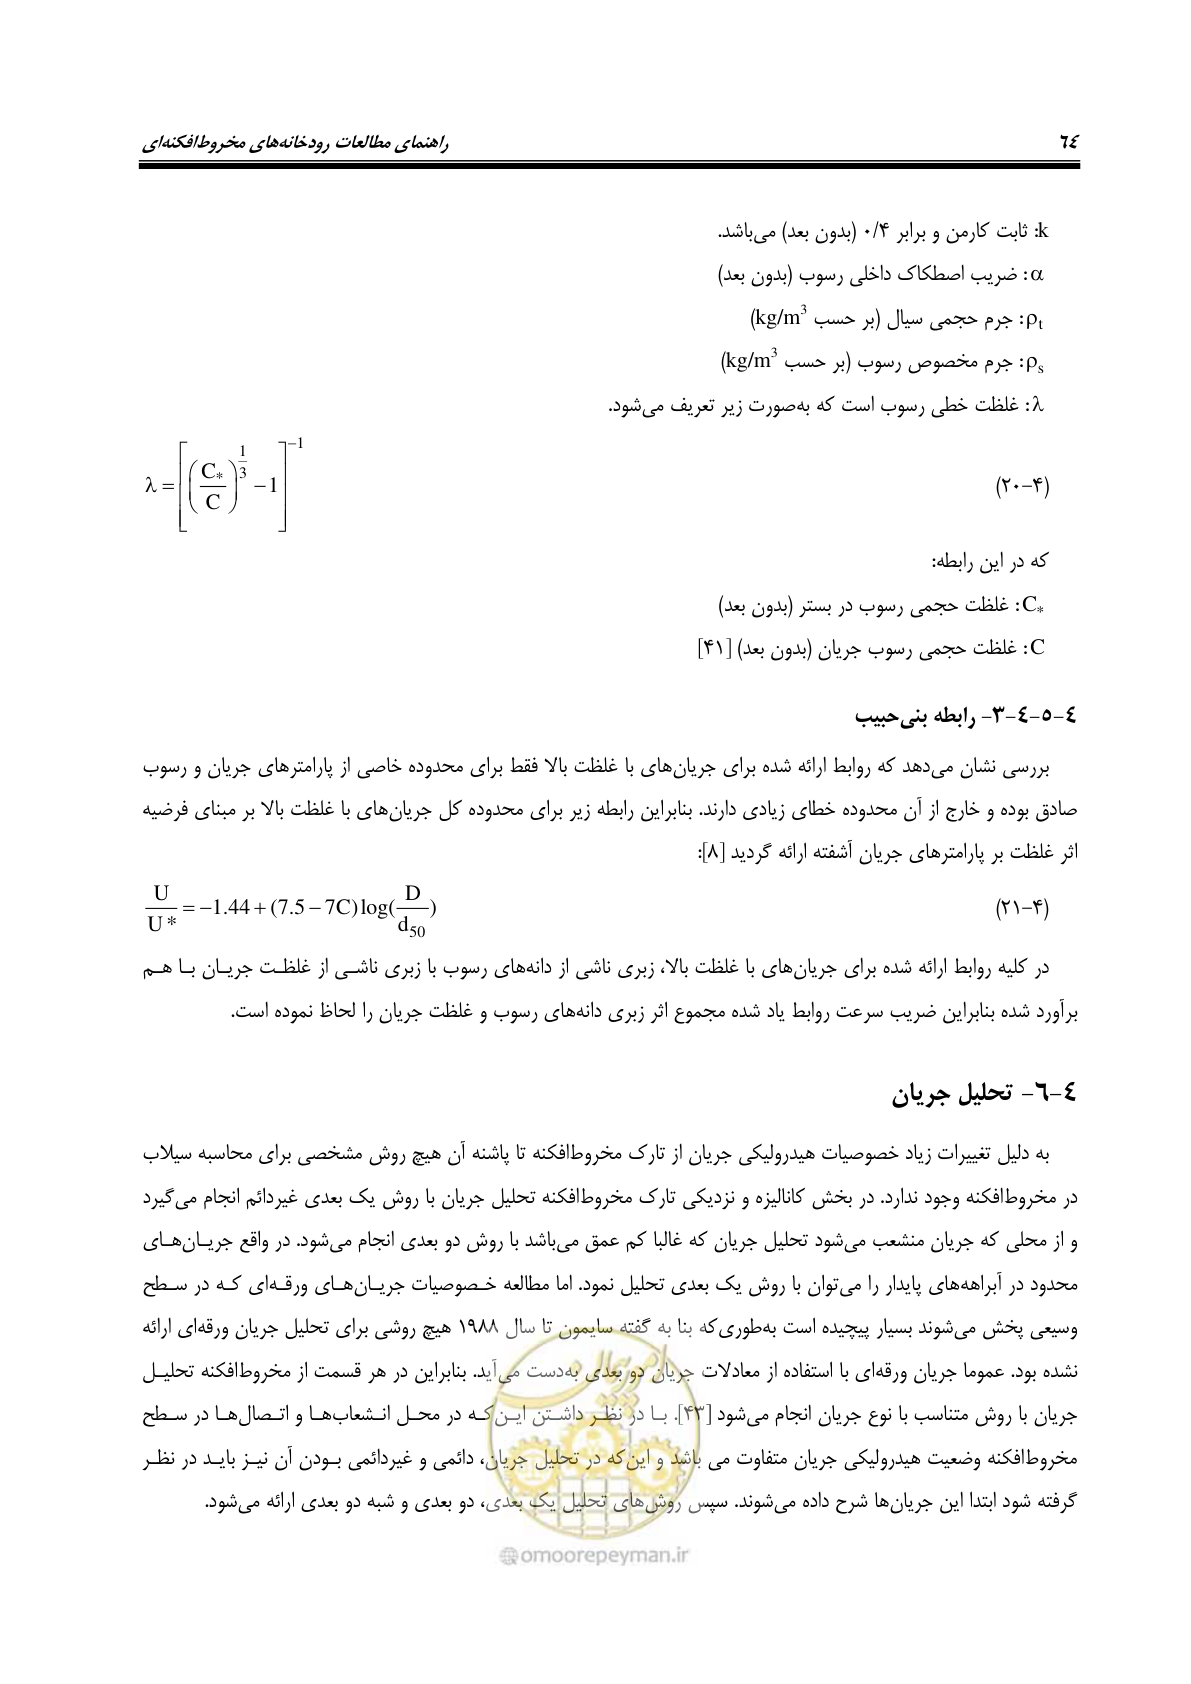 ٦٤ راهنمای مطالعات رودخانه‌های مخروط‌افکنه‌ای
k: ثابت کارمن و برابر ۰/۴ (بدون بعد) می‌باشد.
α: ضریب اصطکاک داخلی رسوب (بدون بعد)
ρt: جرم حجمی سیال (بر حسب kg/m³)
ρs: جرم مخصوص رسوب (بر حسب kg/m³)
λ: غلظت خطی رسوب است که به‌صورت زیر تعریف می‌شود.
(۴-۲۰) λ = [(C*/C)^(1/3) − 1]^−1
که در این رابطه:
C*: غلظت حجمی رسوب در بستر (بدون بعد)
C: غلظت حجمی رسوب جریان (بدون بعد) [۴۱]
٤-٥-٤-٣- رابطه بنی‌حبیب
بررسی نشان می‌دهد که روابط ارائه شده برای جریان‌های با غلظت بالا فقط برای محدوده خاصی از پارامترهای جریان و رسوب
صادق بوده و خارج از آن محدوده خطای زیادی دارند. بنابراین رابطه زیر برای محدوده کل جریان‌های با غلظت بالا بر مبنای فرضیه
اثر غلظت بر پارامترهای جریان آشفته ارائه گردید [۸]:
(۴-۲۱) U/U* = −1.44 + (7.5 − 7C) log(D/d50)
در کلیه روابط ارائه شده برای جریان‌های با غلظت بالا، زبری ناشی از دانه‌های رسوب با زبری ناشـی از غلظـت جریـان بـا هـم
برآورد شده بنابراین ضریب سرعت روابط یاد شده مجموع اثر زبری دانه‌های رسوب و غلظت جریان را لحاظ نموده است.
٤-٦- تحلیل جریان
به دلیل تغییرات زیاد خصوصیات هیدرولیکی جریان از تارک مخروط‌افکنه تا پاشنه آن هیچ روش مشخصی برای محاسبه سیلاب
در مخروط‌افکنه وجود ندارد. در بخش کانالیزه و نزدیکی تارک مخروط‌افکنه تحلیل جریان با روش یک بعدی غیردائم انجام می‌گیرد
و از محلی که جریان منشعب می‌شود تحلیل جریان که غالبا کم عمق می‌باشد با روش دو بعدی انجام می‌شود. در واقع جریـان‌هـای
محدود در آبراهه‌های پایدار را می‌توان با روش یک بعدی تحلیل نمود. اما مطالعه خـصوصیات جریـان‌هـای ورقـه‌ای کـه در سـطح
وسیعی پخش می‌شوند بسیار پیچیده است به‌طوری‌که بنا به گفته سایمون تا سال ۱۹۸۸ هیچ روشی برای تحلیل جریان ورقه‌ای ارائه
نشده بود. عموما جریان ورقه‌ای با استفاده از معادلات جریان دو بعدی به‌دست می‌آید. بنابراین در هر قسمت از مخروط‌افکنه تحلیـل
جریان با روش متناسب با نوع جریان انجام می‌شود [۴۳]. بـا در نظـر داشـتن ایـن‌کـه در محـل انـشعاب‌هـا و اتـصال‌هـا در سـطح
مخروط‌افکنه وضعیت هیدرولیکی جریان متفاوت می باشد و این‌که در تحلیل جریان، دائمی و غیردائمی بـودن آن نیـز بایـد در نظـر
گرفته شود ابتدا این جریان‌ها شرح داده می‌شوند. سپس روش‌های تحلیل یک بعدی، دو بعدی و شبه دو بعدی ارائه می‌شود.
امور پیمان
@omoorepeyman.ir